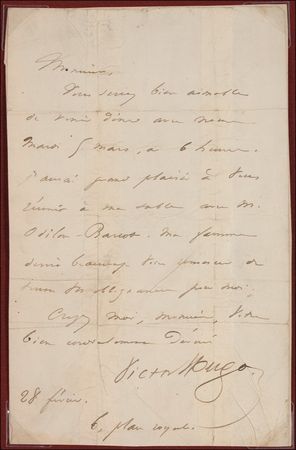 Monsieur,
Vous serez bien aimable
de venir dîner avec nous
Mardi 5 mars, à 6 heures.
j'aurai grand plaisir à vous
réunir à ma table avec M.
Odilon-Barrot. Ma femme
de
pour moi.
Croyez moi, monsieur, Votre
bien cordialement Dévoué
Victor Hugo.
28 février.
6, place royale.